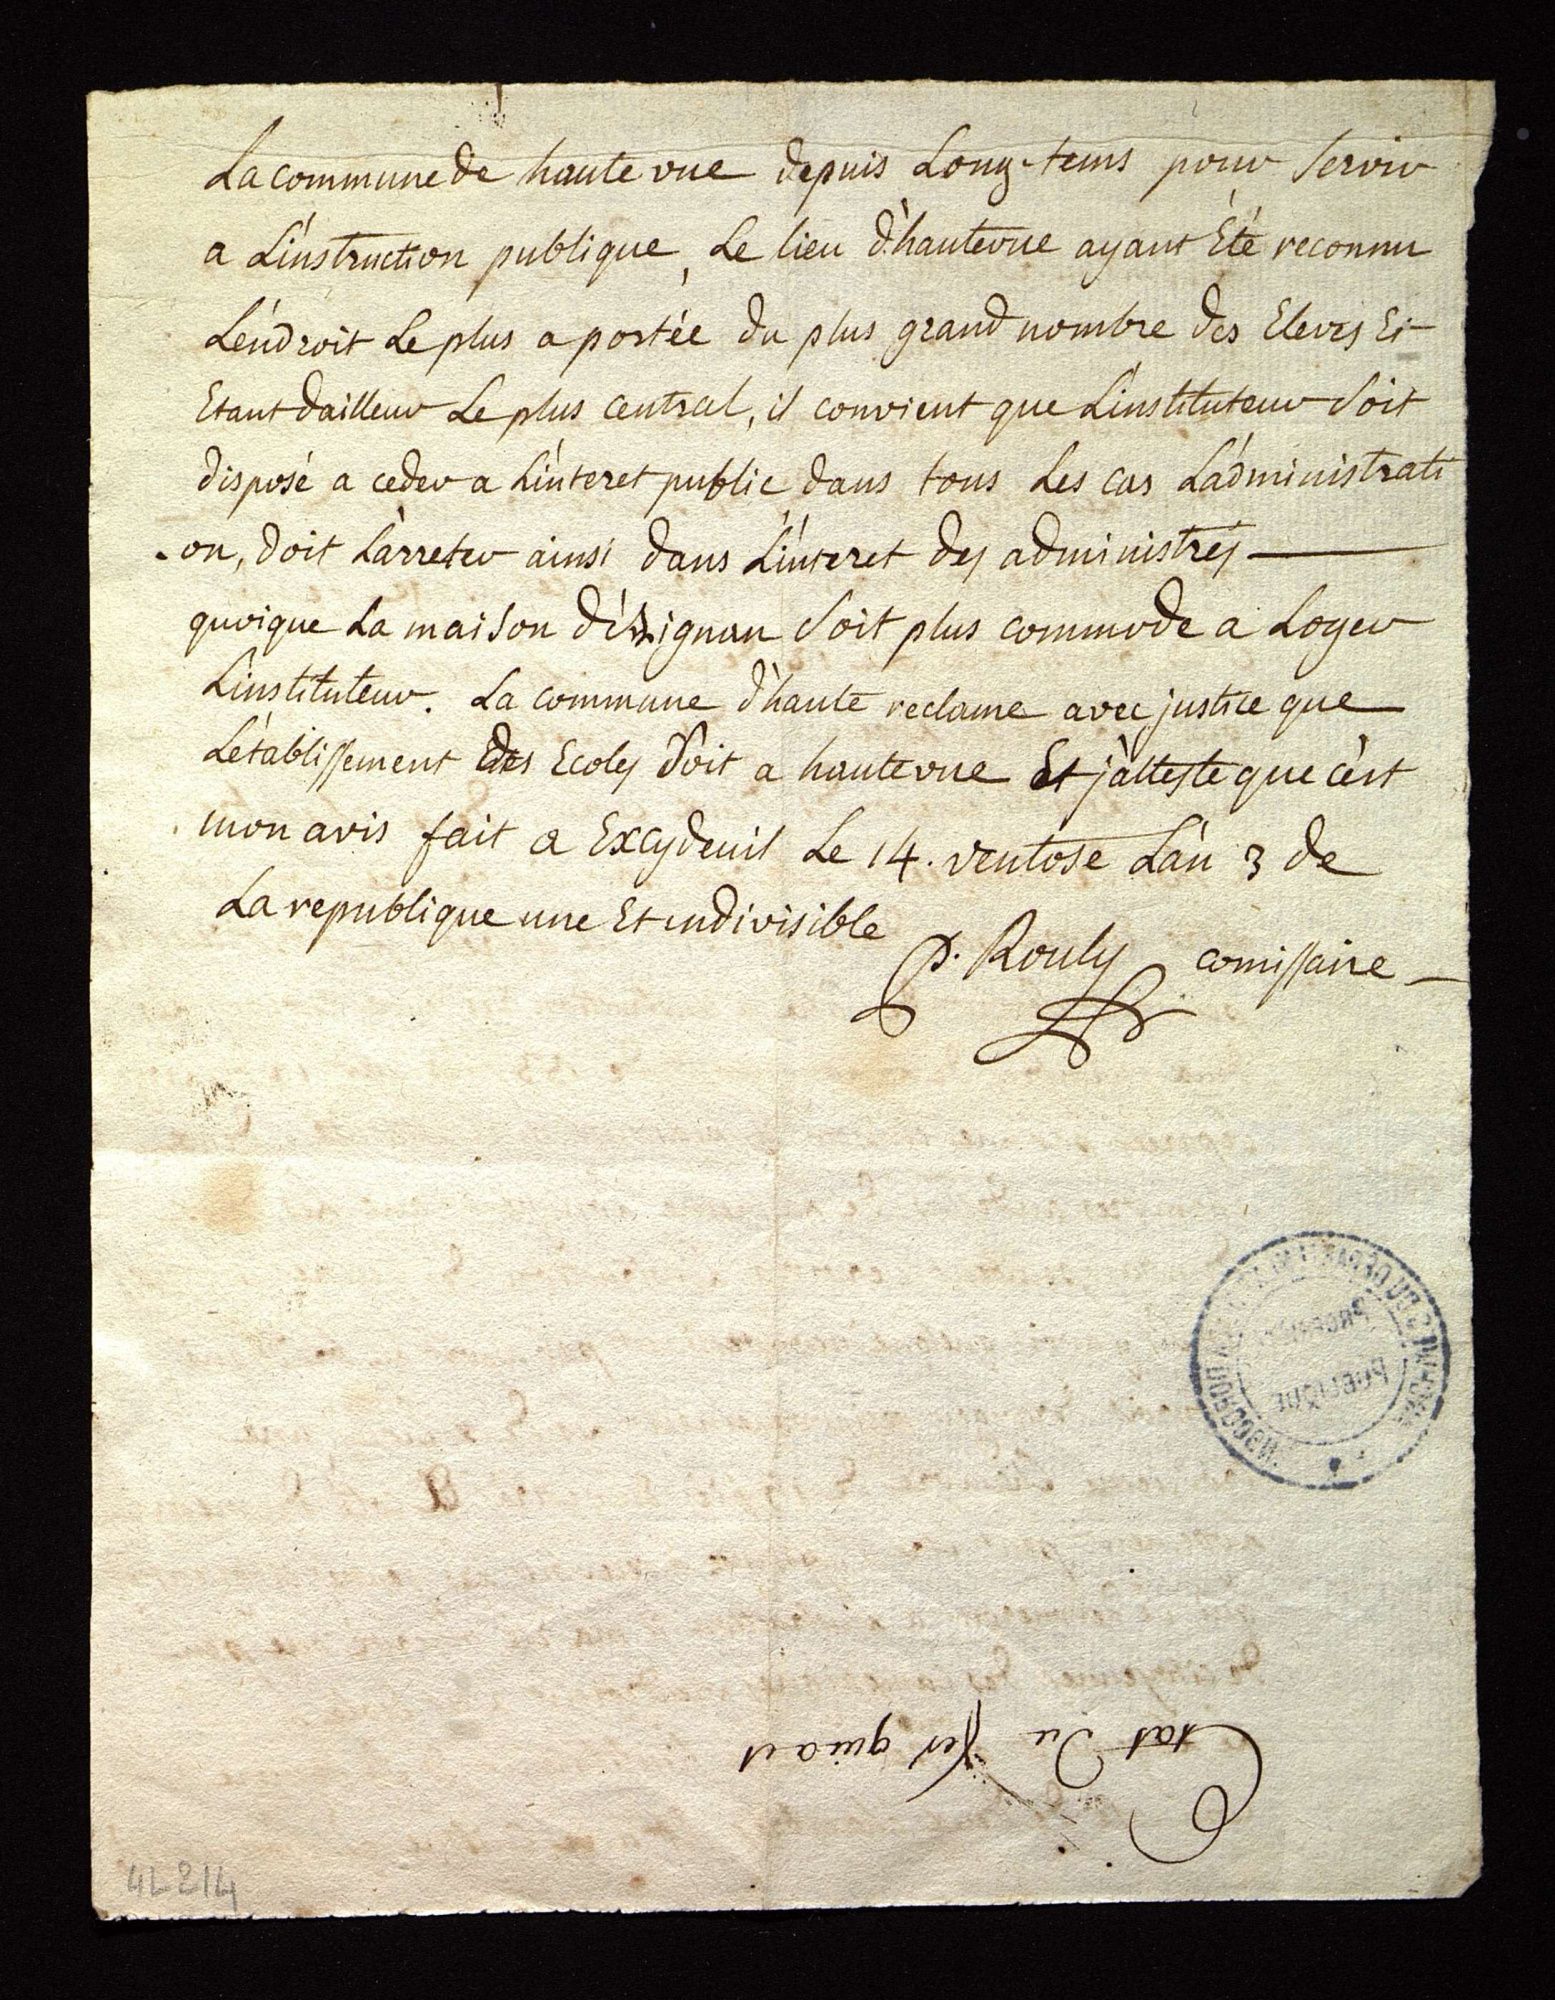 La commune de haute vue depuis Long-tems pour servir
a L'instruction publique, Le lieu d'hautevue ayant Eté reconnu
L'endroit Le plus a portée du plus grand nombre des Eleves Et
Etant dailleur Le plus central, il convient que L'instituteur soit
disposé a ceder a L'interet public dans tous Les cas L'administrati
-on, doit L'arreter ainsi dans L'interet des administrés
quoique La maison soit plus commode a Loger
L'instituteur. La commune d'haute reclame avec justice que
L'etablissement des Ecoles soit a hautevue Et j'atteste que c'est
mon avis fait a Excydeuil Le 14. ventose L'an 3 de
La republique une Et indivisible
P. Rouly comissaire
Etat du
4L214